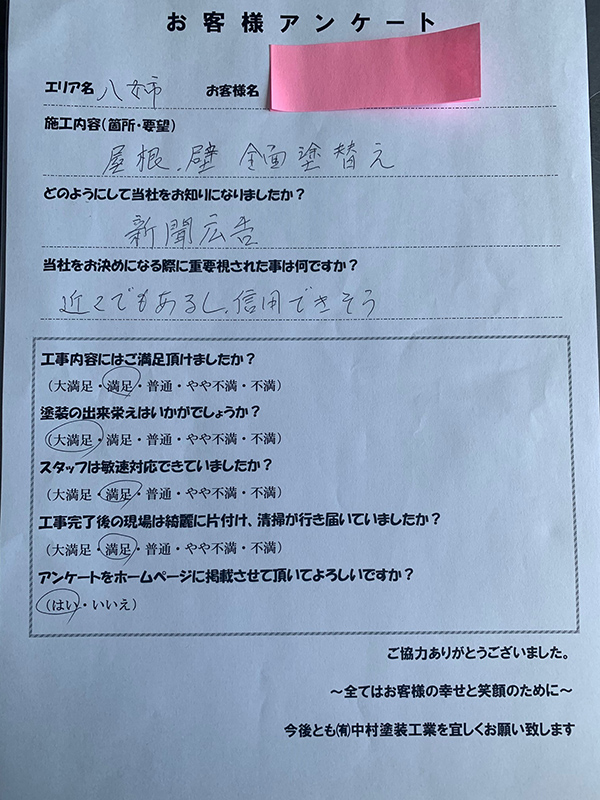 お客様アンケート
エリア名 八女市 お客様名
施工内容(箇所・要望)
屋根、壁 全面塗替え
どのようにして当社をお知りになりましたか？
新聞広告
当社をお決めになる際に重要視された事は何ですか？
近くでもあるし、信用できそう
工事内容にはご満足頂けましたか？
（大満足・満足・普通・やや不満・不満）
塗装の出来栄えはいかがでしょうか？
（大満足・満足・普通・やや不満・不満）
スタッフは敏速対応できていましたか？
（大満足・満足・普通・やや不満・不満）
工事完了後の現場は綺麗に片付け、清掃が行き届いていましたか？
（大満足・満足・普通・やや不満・不満）
アンケートをホームページに掲載させて頂いてよろしいですか？
（はい・いいえ）
ご協力ありがとうございました。
～全てはお客様の幸せと笑顔のために～
今後とも㈲中村塗装工業を宜しくお願い致します